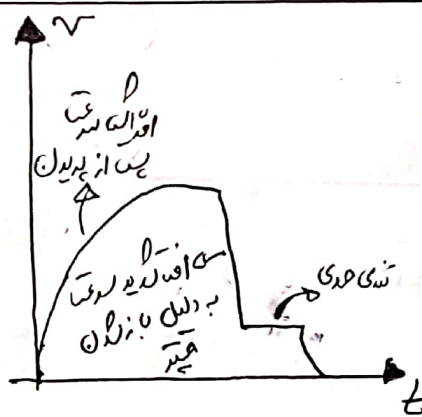 v
افزایش سرعت
پس از پریدن
افت شدید سرعت
به دلیل باز شدن
چتر
تندی حدی
t